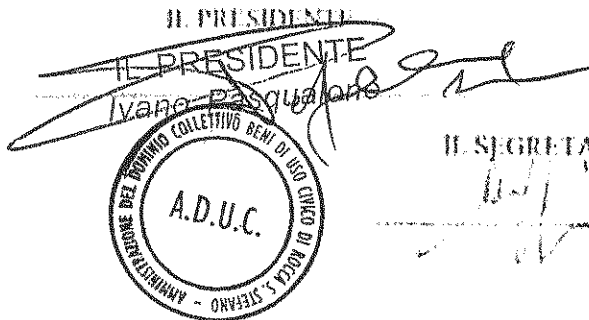 IL PRESIDENTE
IL PRESIDENTE
Ivano Pasqualone
AMMINISTRAZIONE DEL DOMINIO COLLETTIVO BENI DI USO CIVICO DI ROCCA S. STEFANO -
A.D.U.C.
IL SEGRETA